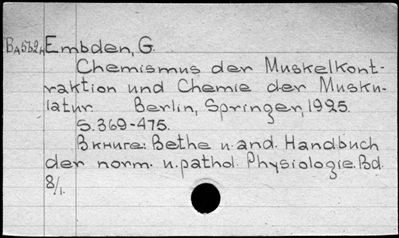 Embden, G.
Chemismus der Muskelkont-
raktion und Chemie der Musku-
latur. Berlin, Springer, 1925.
S. 369-475.
В книге: Bethe u. and. Handbuch
der norm. u. pathol. Physiologie. Bd.
8/1.